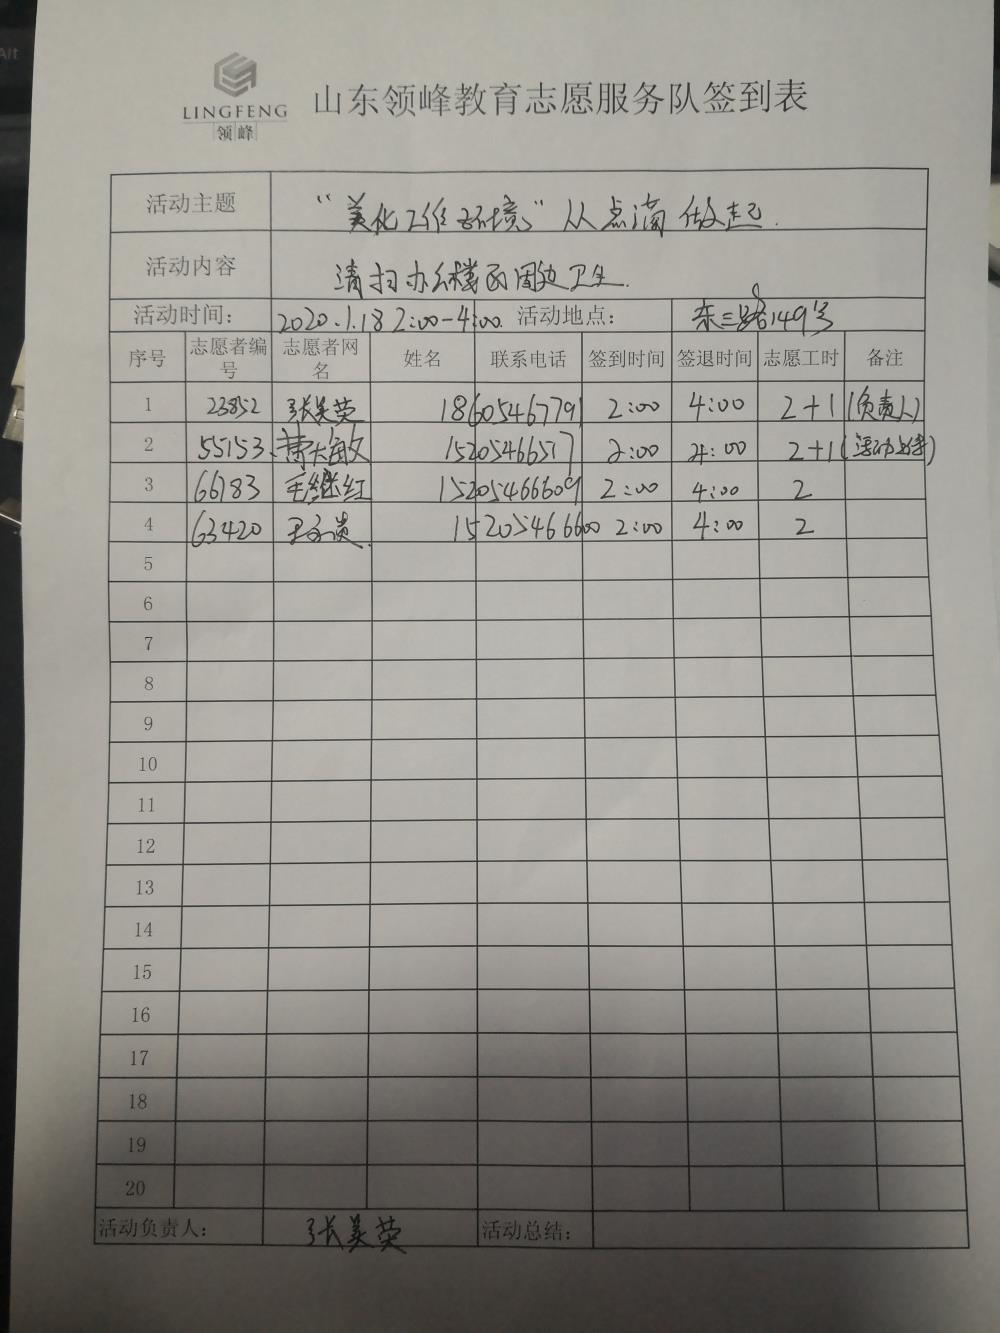 Alt
LINGFENG
领峰
山东领峰教育志愿服务队签到表
活动主题 “美化工作环境”从点滴做起.
活动内容 清扫办公楼的周边卫生.
活动时间: 2020.1.18 2:00-4:00. 活动地点: 东三路149号
序号 志愿者编号 志愿者网名 姓名 联系电话 签到时间 签退时间 志愿工时 备注
1 23852 张美荣 18605467791 2:00 4:00 2+1 (负责人)
2 55153 敏 15205466517 2:00 4:00 2+1 (活动)
3 66783 毛继红 15205466609 2:00 4:00 2
4 63420 王 15205466600 2:00 4:00 2
5
6
7
8
9
10
11
12
13
14
15
16
17
18
19
20
活动负责人: 张美荣 活动总结: